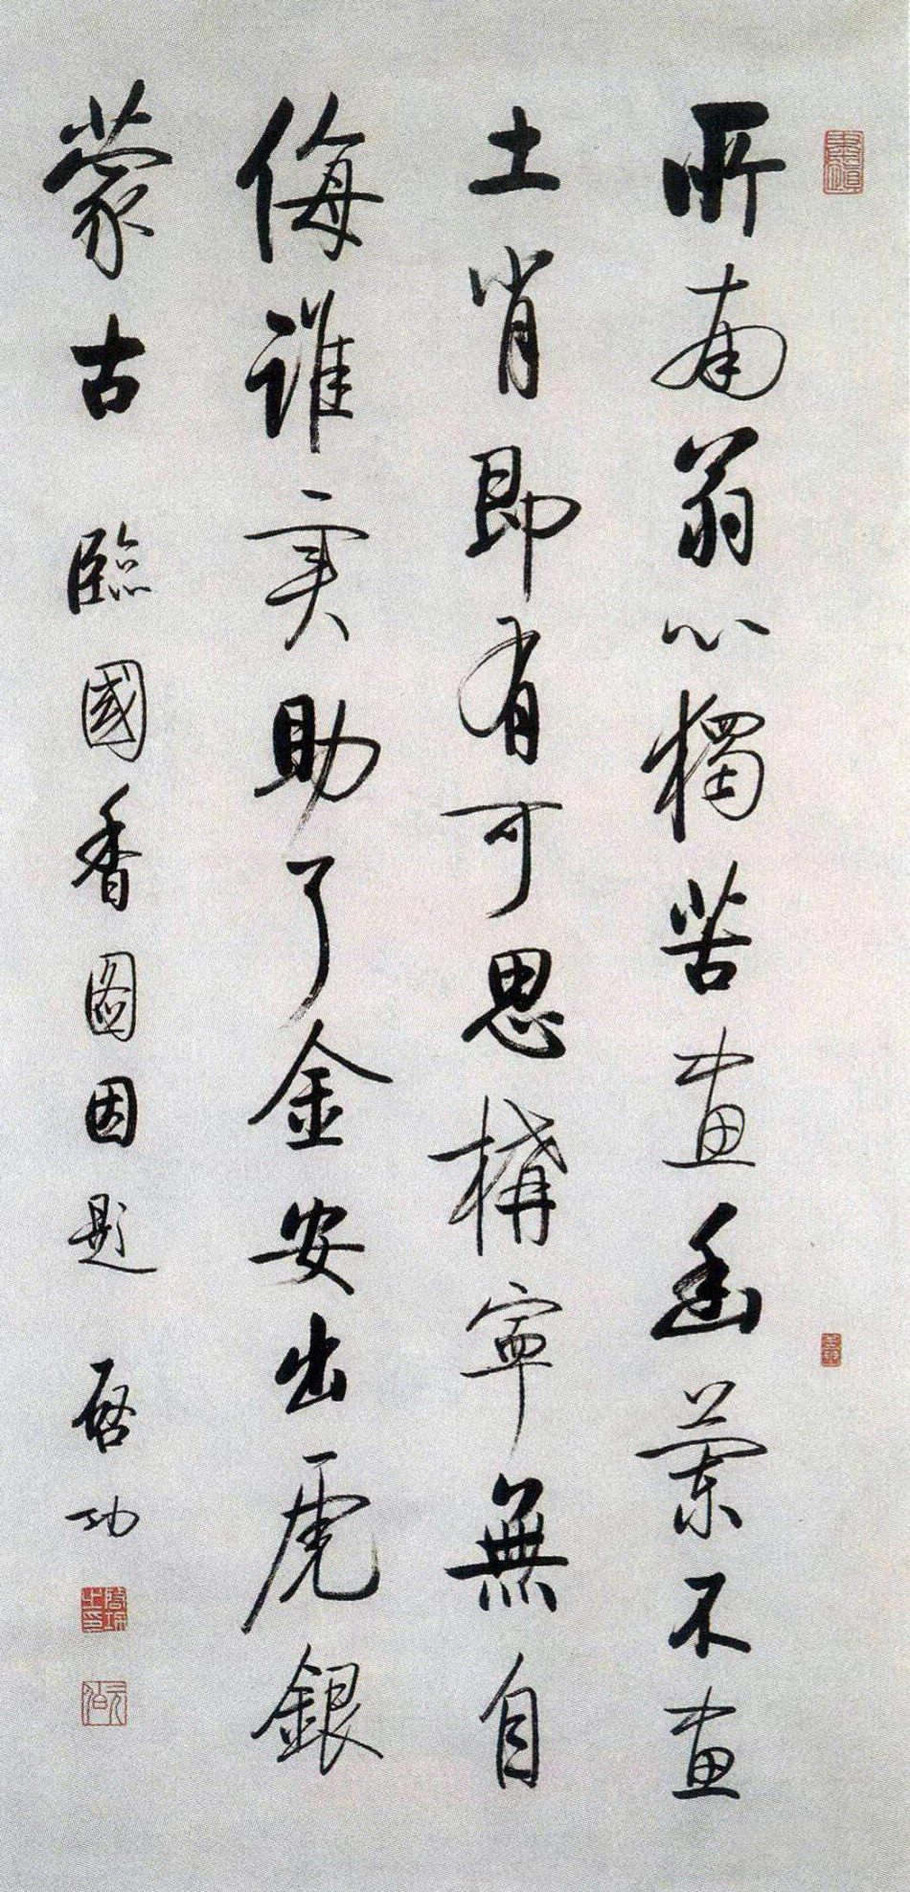 所南翁心獨苦畫幽蘭不畫
土肖即有可思構寧無自
侮誰實助了金安出虎銀
蒙古 臨國香圖因題 啟功